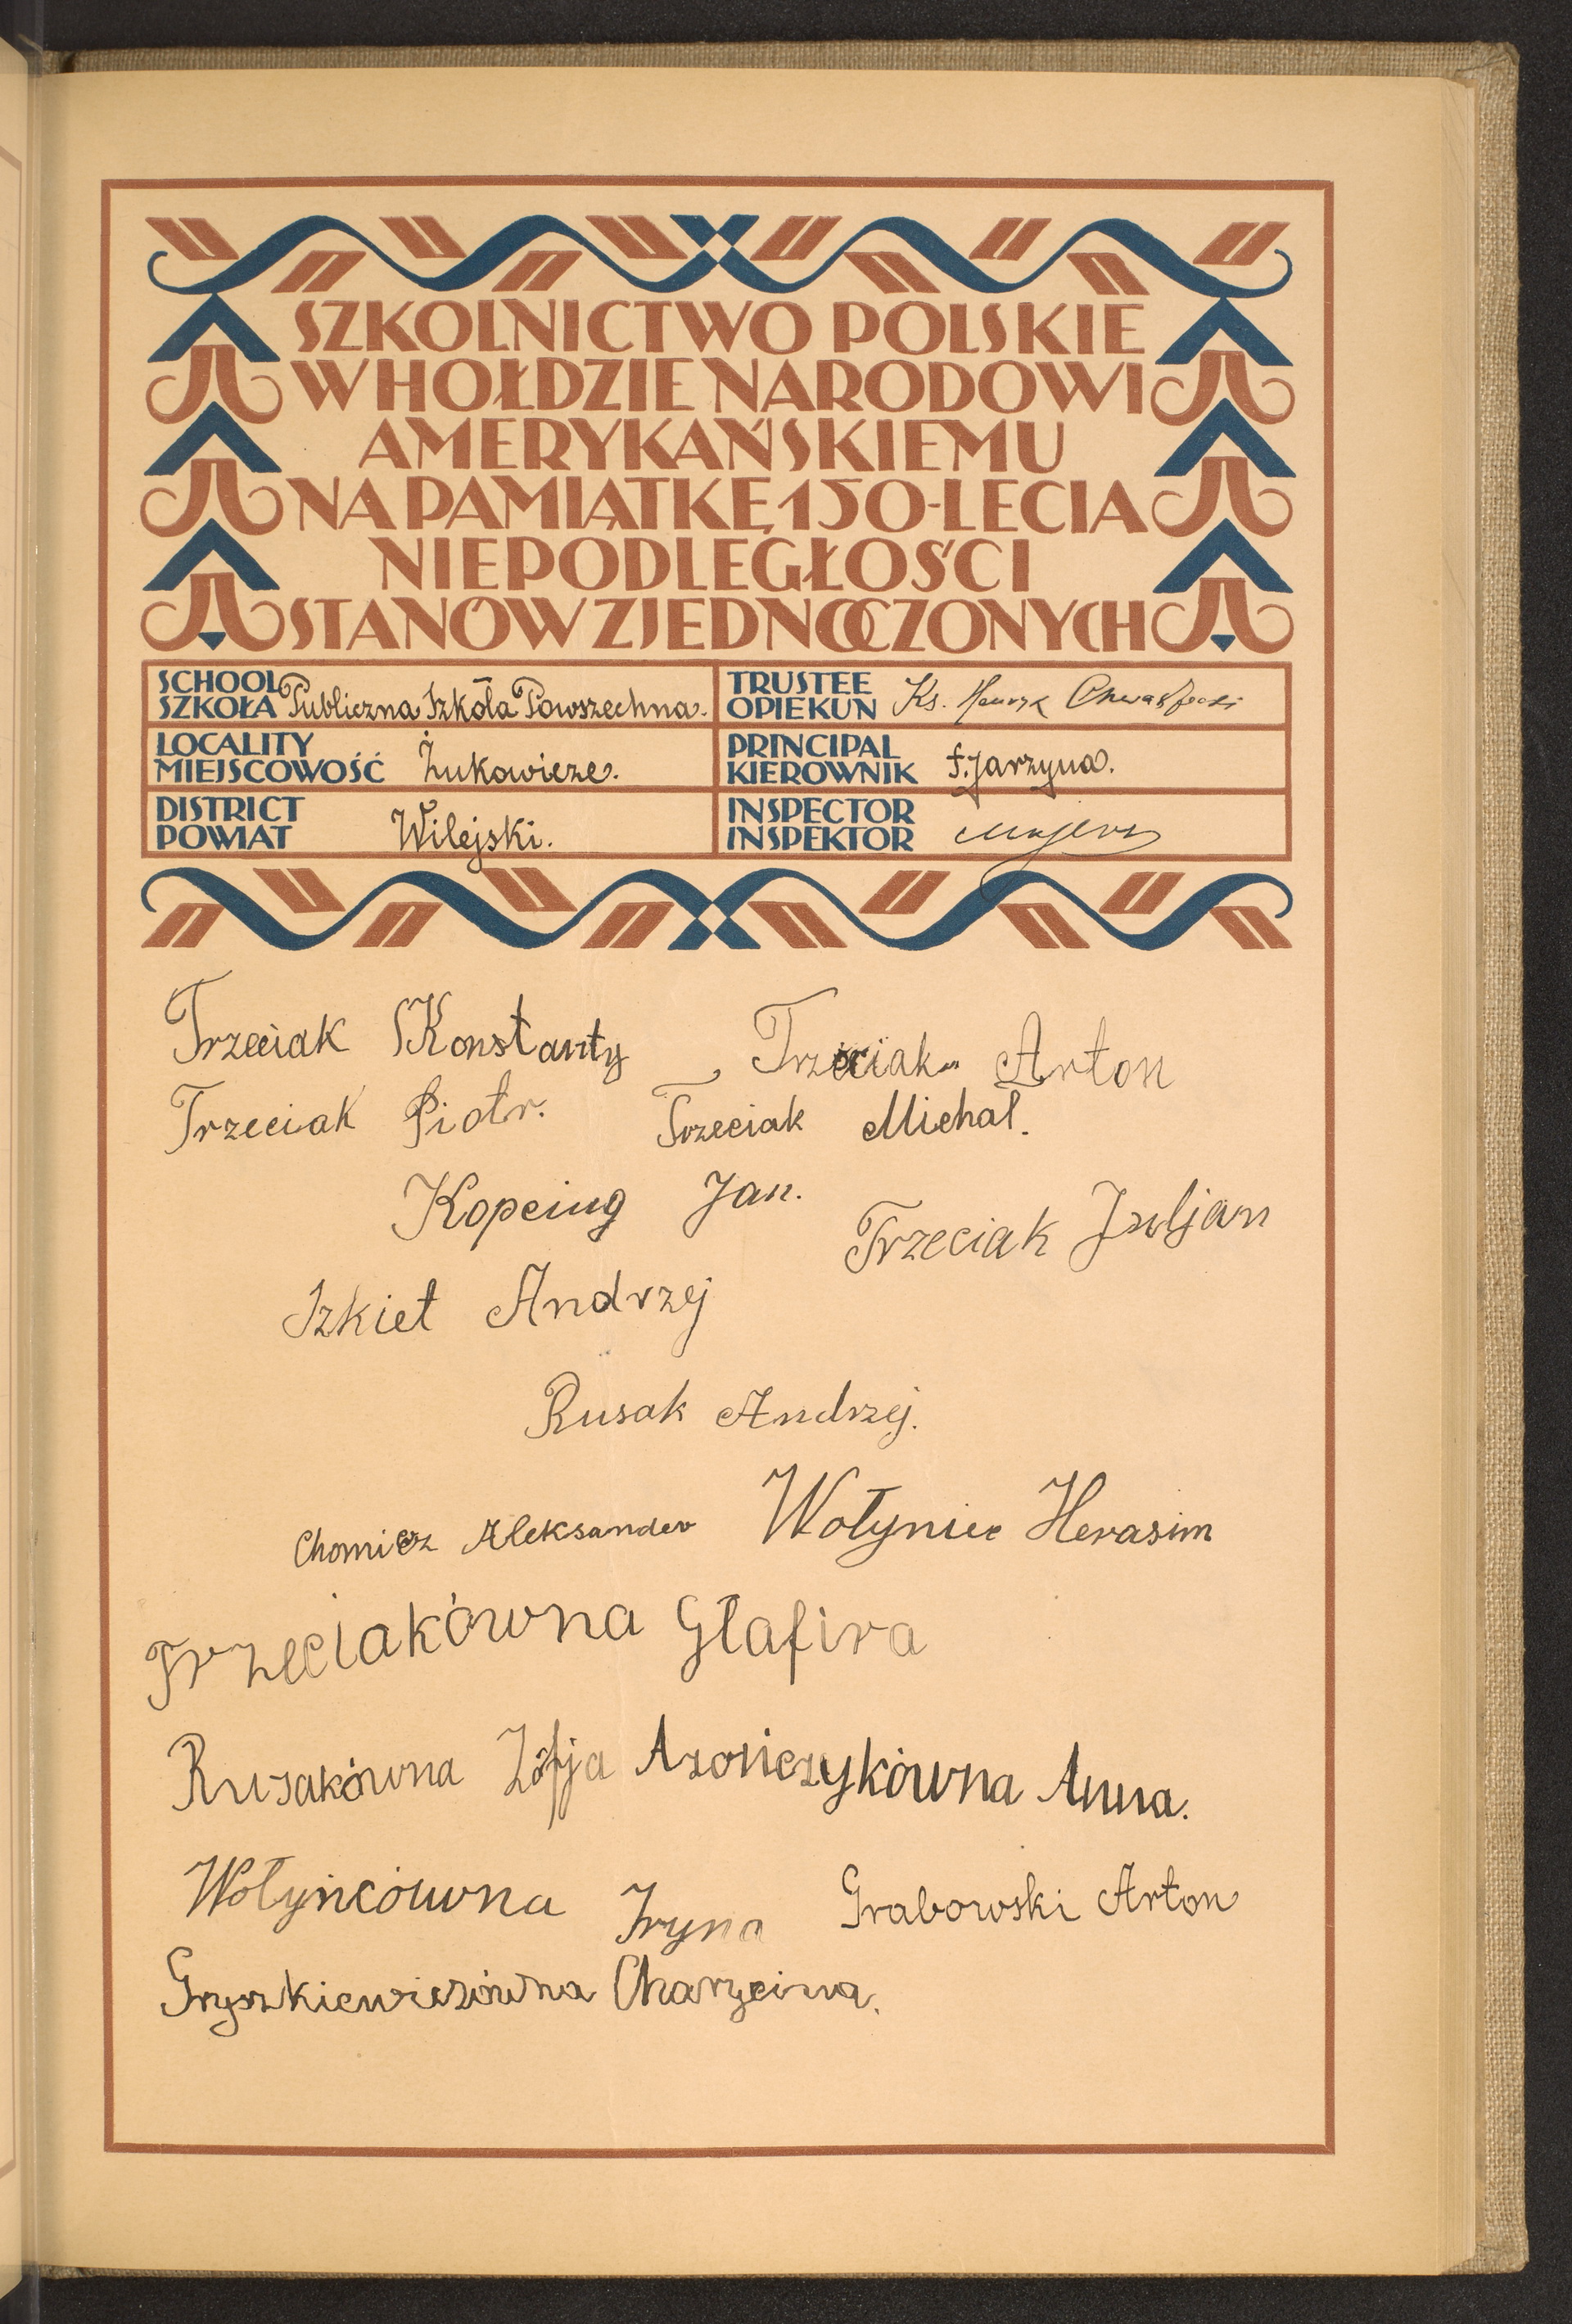 SZKOLNICTWO POLSKIE
W HOŁDZIE NARODOWI
AMERYKAŃSKIEMU
NA PAMIĄTKĘ 150-LECIA
NIEPODLEGŁOŚCI
STANÓW ZJEDNOCZONYCH
SCHOOL
SZKOŁA Publiczna Szkoła Powszechna.
TRUSTEE
OPIEKUN Ks. Henryk
LOCALITY
MIEJSCOWOŚĆ Żukowicze.
PRINCIPAL
KIEROWNIK F. Jarzyna.
DISTRICT
POWIAT Wilejski.
INSPECTOR
INSPEKTOR
Trzeciak Konstanty Trzeciak Arton
Trzeciak Piotr. Trzeciak Michał.
Kopciug Jan.
Trzeciak Juljan
Szkiet Andrzej
Rusak Andrzej.
Chomicz Aleksander Wołyniec Herasim
Trzeciakówna Głafira
Rusakówna Zofja Azończykówna Anna.
Wołyńcówna Iryna Grabowski Arton
Gryszkiewiczówna Charycina.